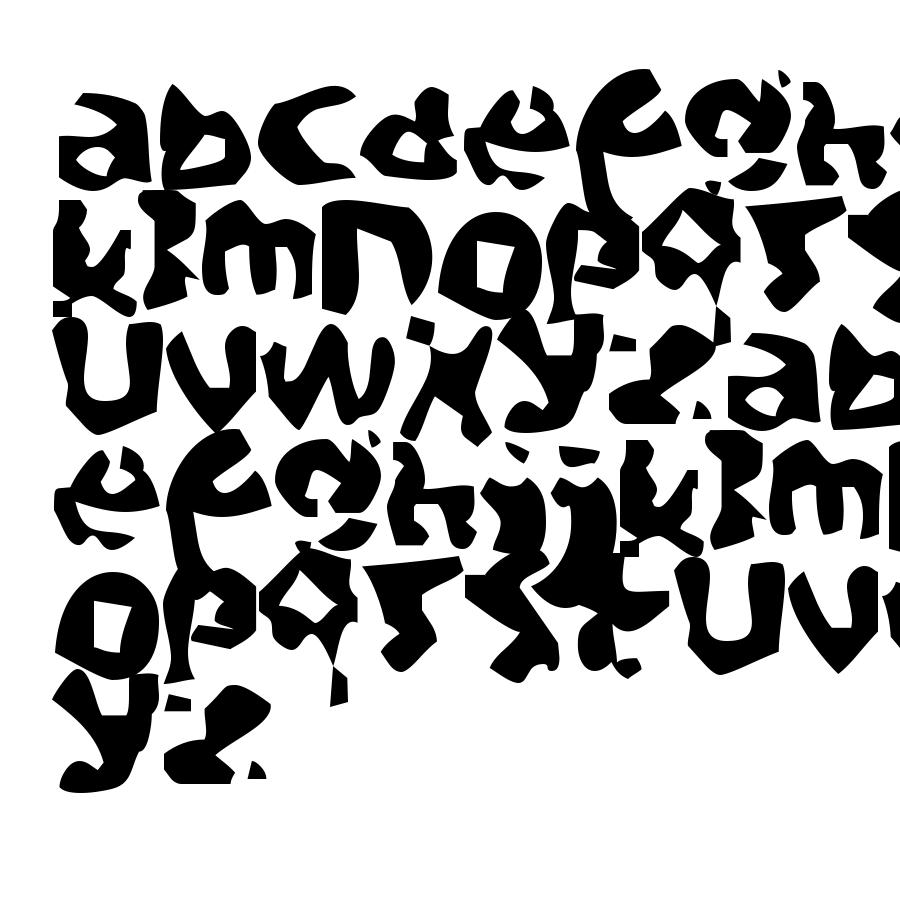 abcdefgh
klmnopqrs
uvwxyzab
efghijklm
opqrstuv
yz